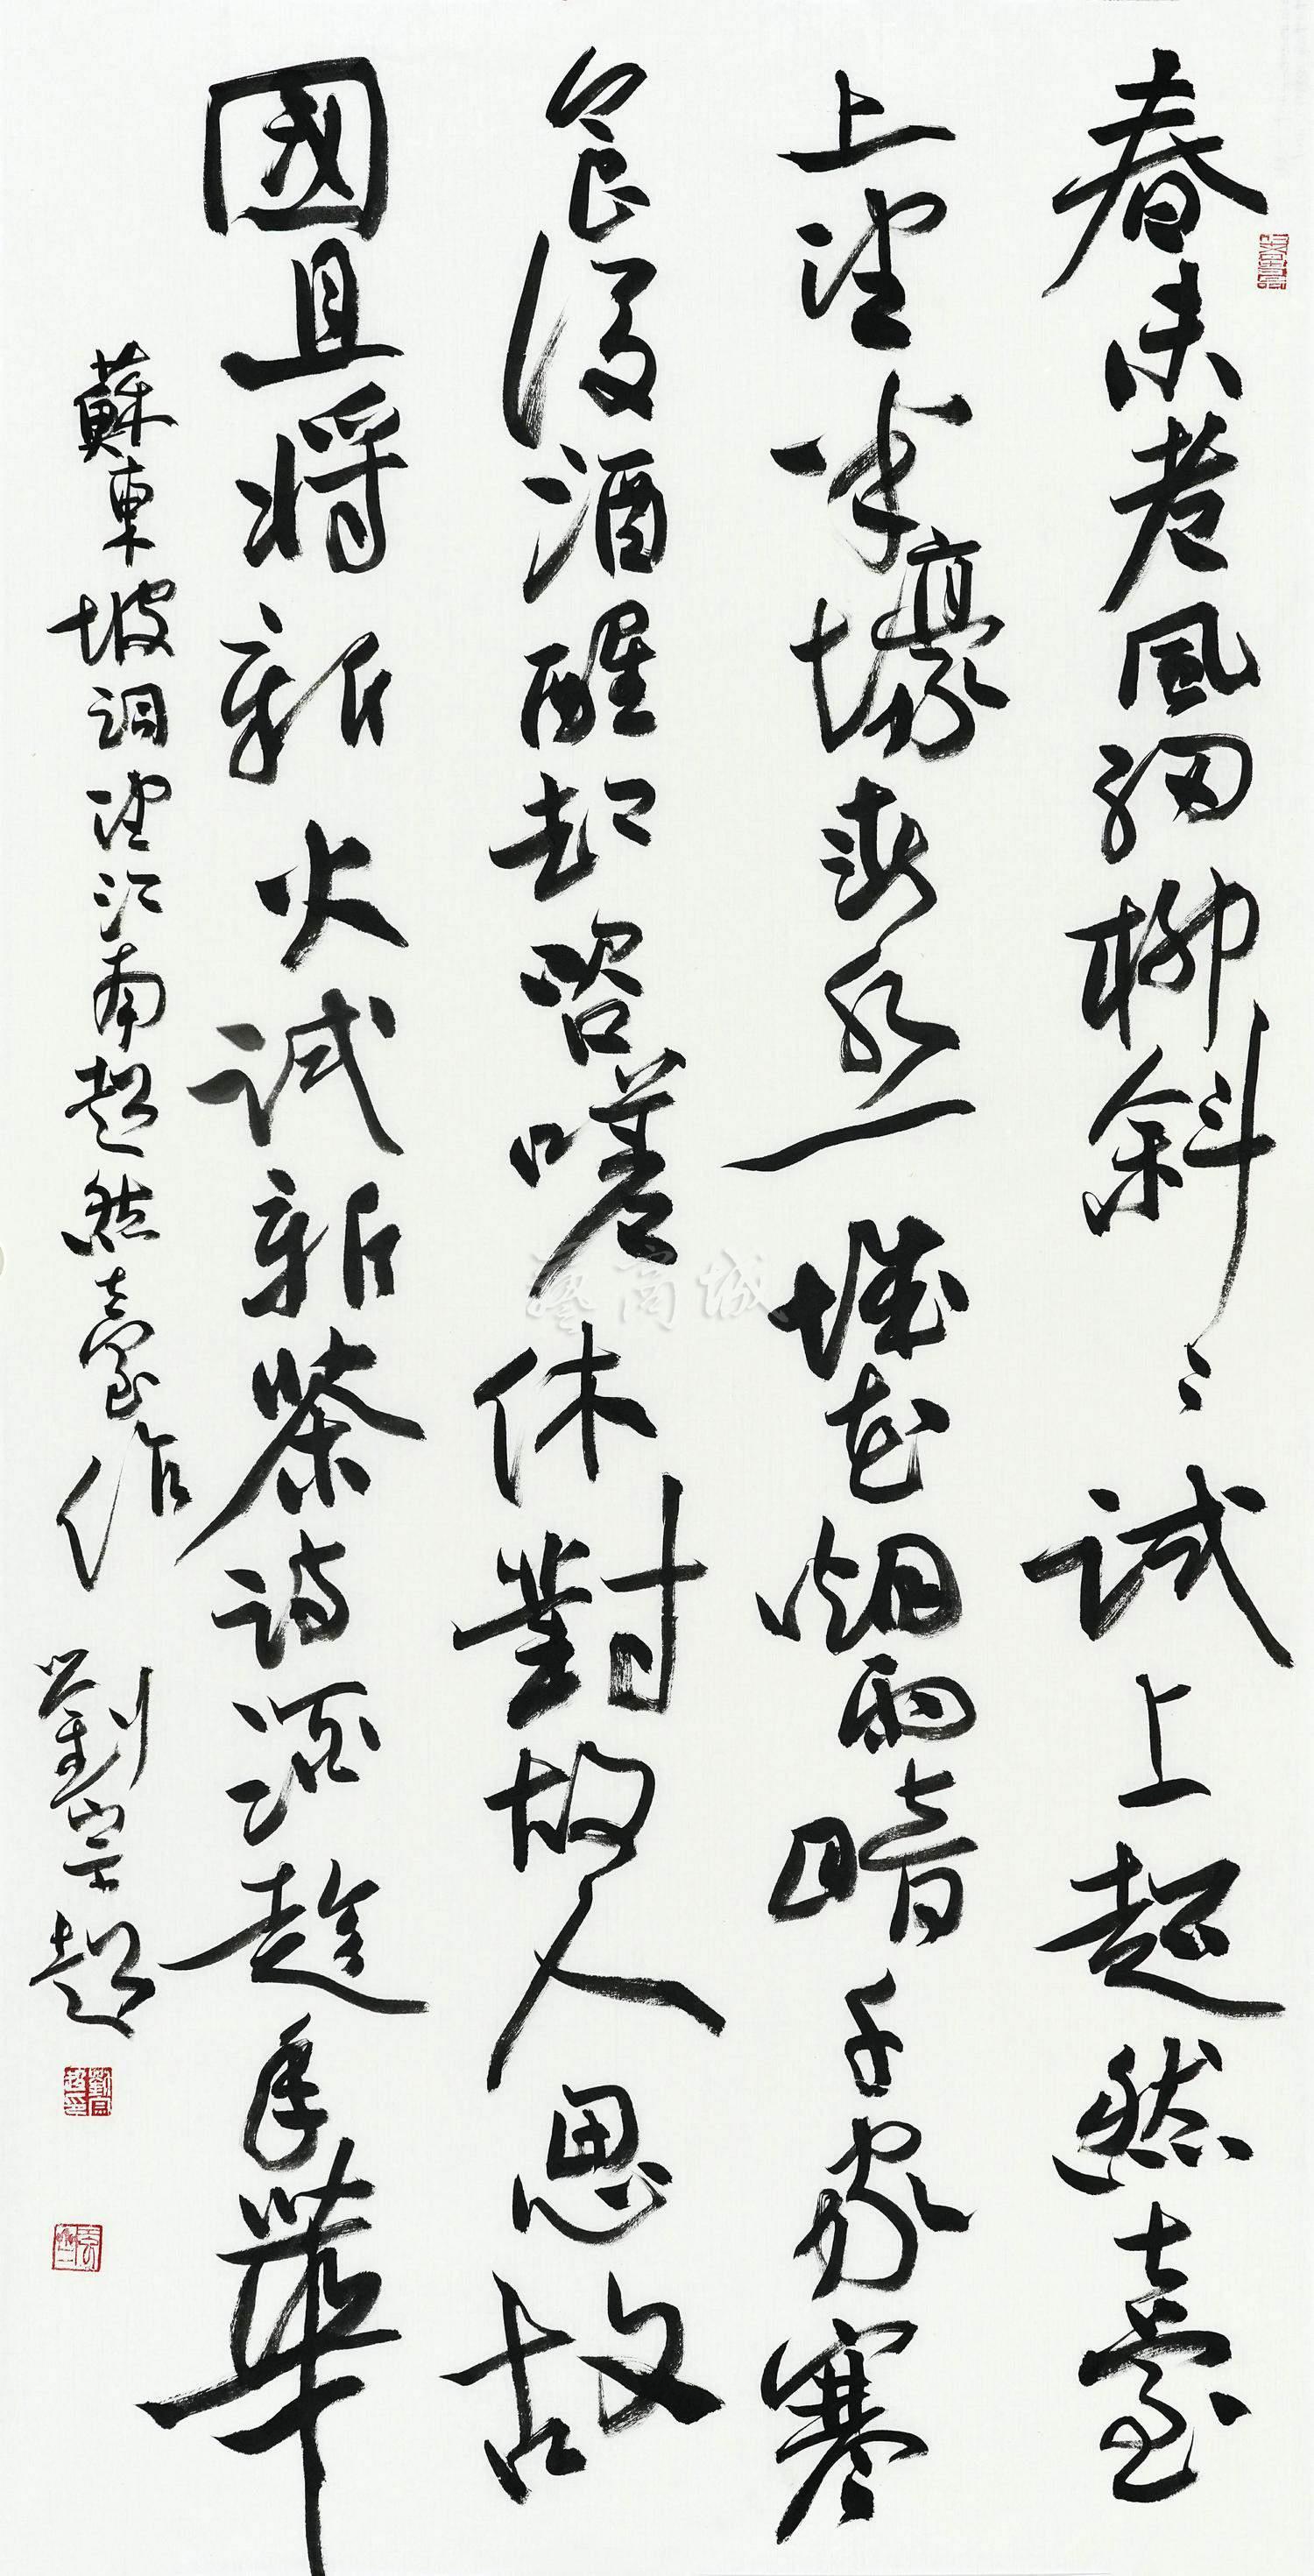 春未老風細柳斜〻試上超然臺
上望半壕春水一城花烟雨暗千家寒
食後酒醒却咨嗟休對故人思故
國且將新火試新茶詩酒趁年華
蘇東坡詞望江南超然臺作 劉宗超
劉宗超印
藝商城